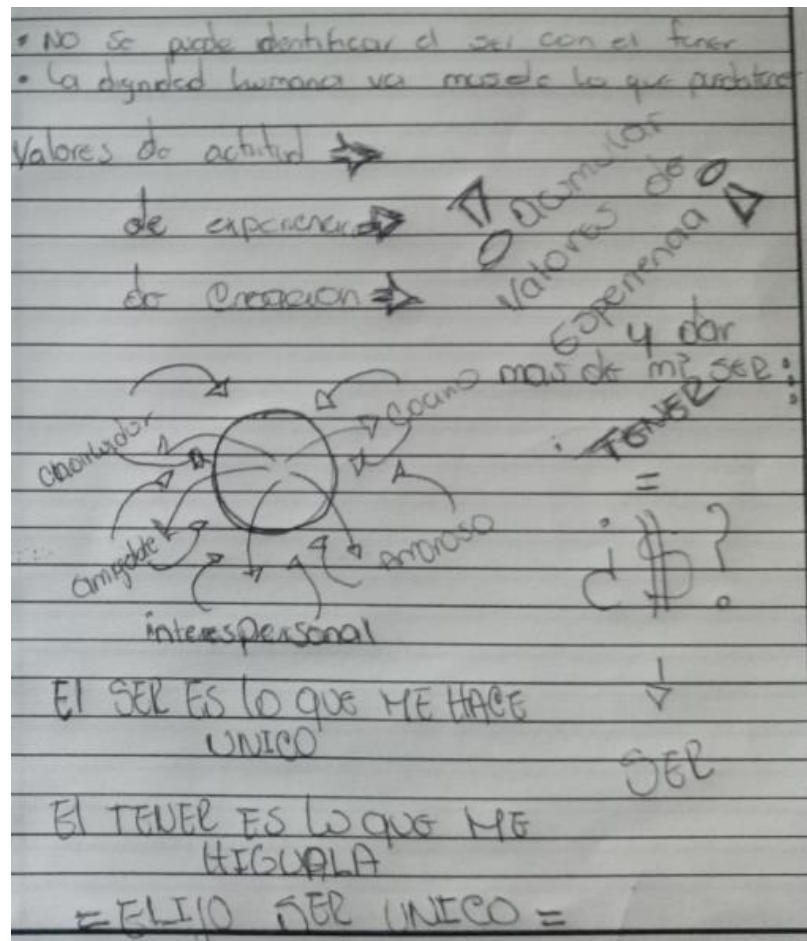 • NO se puede identificar el ser con el tener
• La dignidad humana va mas de lo que
Valores de actitud ⇒
de experiencia ⇒
de Creacion ⇒
Acumular
Valores de
Experiencia
y dar
mas de mi SER:
TENER
=
¿$?
SER
cariño
amigable
Amoroso
interes personal
El SER ES lo QUE ME HACE
UNICO
El TENER ES lo QUE ME
HIGUALA
= ELIJO SER UNICO =